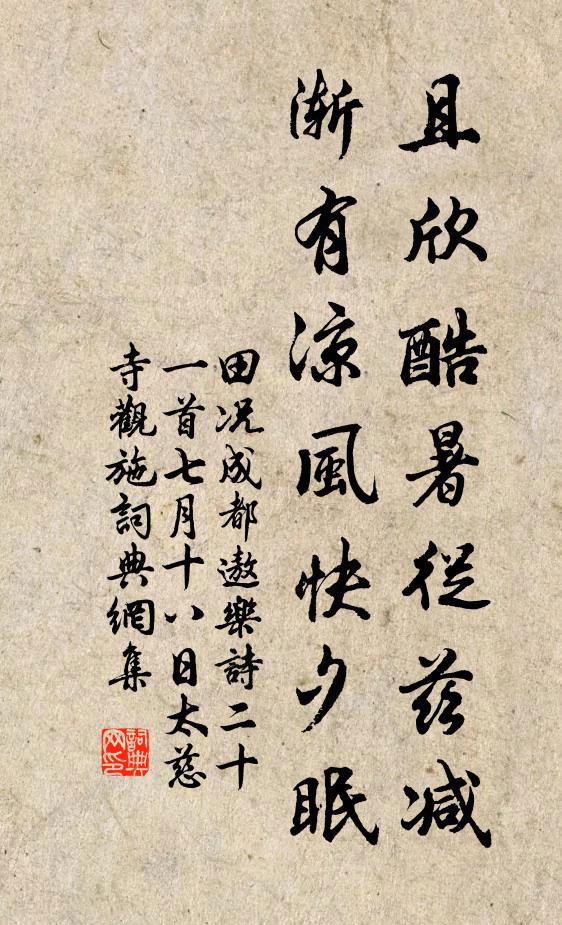 且欣酷暑從茲減
漸有涼風快夕眠
田況成都遨樂詩二十
一首七月十八日太慈
寺觀施詞典網集
詞典網印